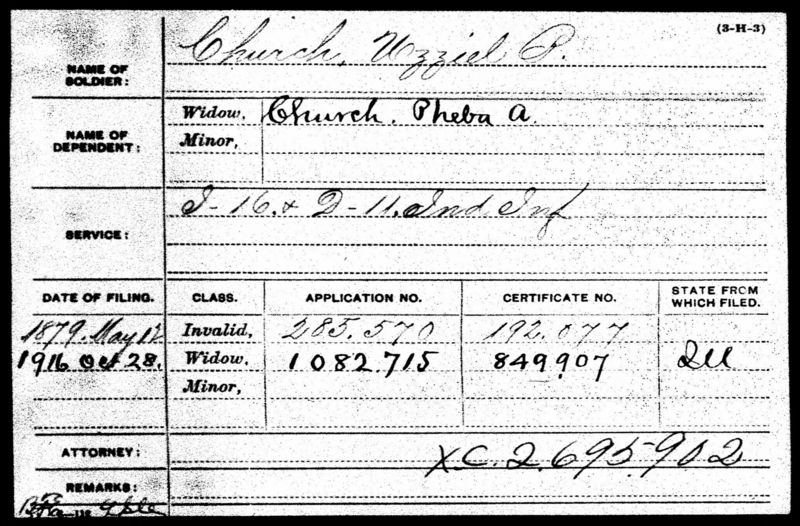 (3-H-3)
NAME OF SOLDIER: Church, Uzziel P.
NAME OF DEPENDENT: Widow, Church, Pheba A.
Minor,
SERVICE: I-16.& D-11. Ind. Inf
DATE OF FILING. CLASS. APPLICATION NO. CERTIFICATE NO. STATE FROM WHICH FILED.
1879. May 12 Invalid, 285.570 192.077
1916 Oct 28. Widow, 1082715 849907 Ill
Minor,
ATTORNEY: XC.2.695.902
REMARKS: